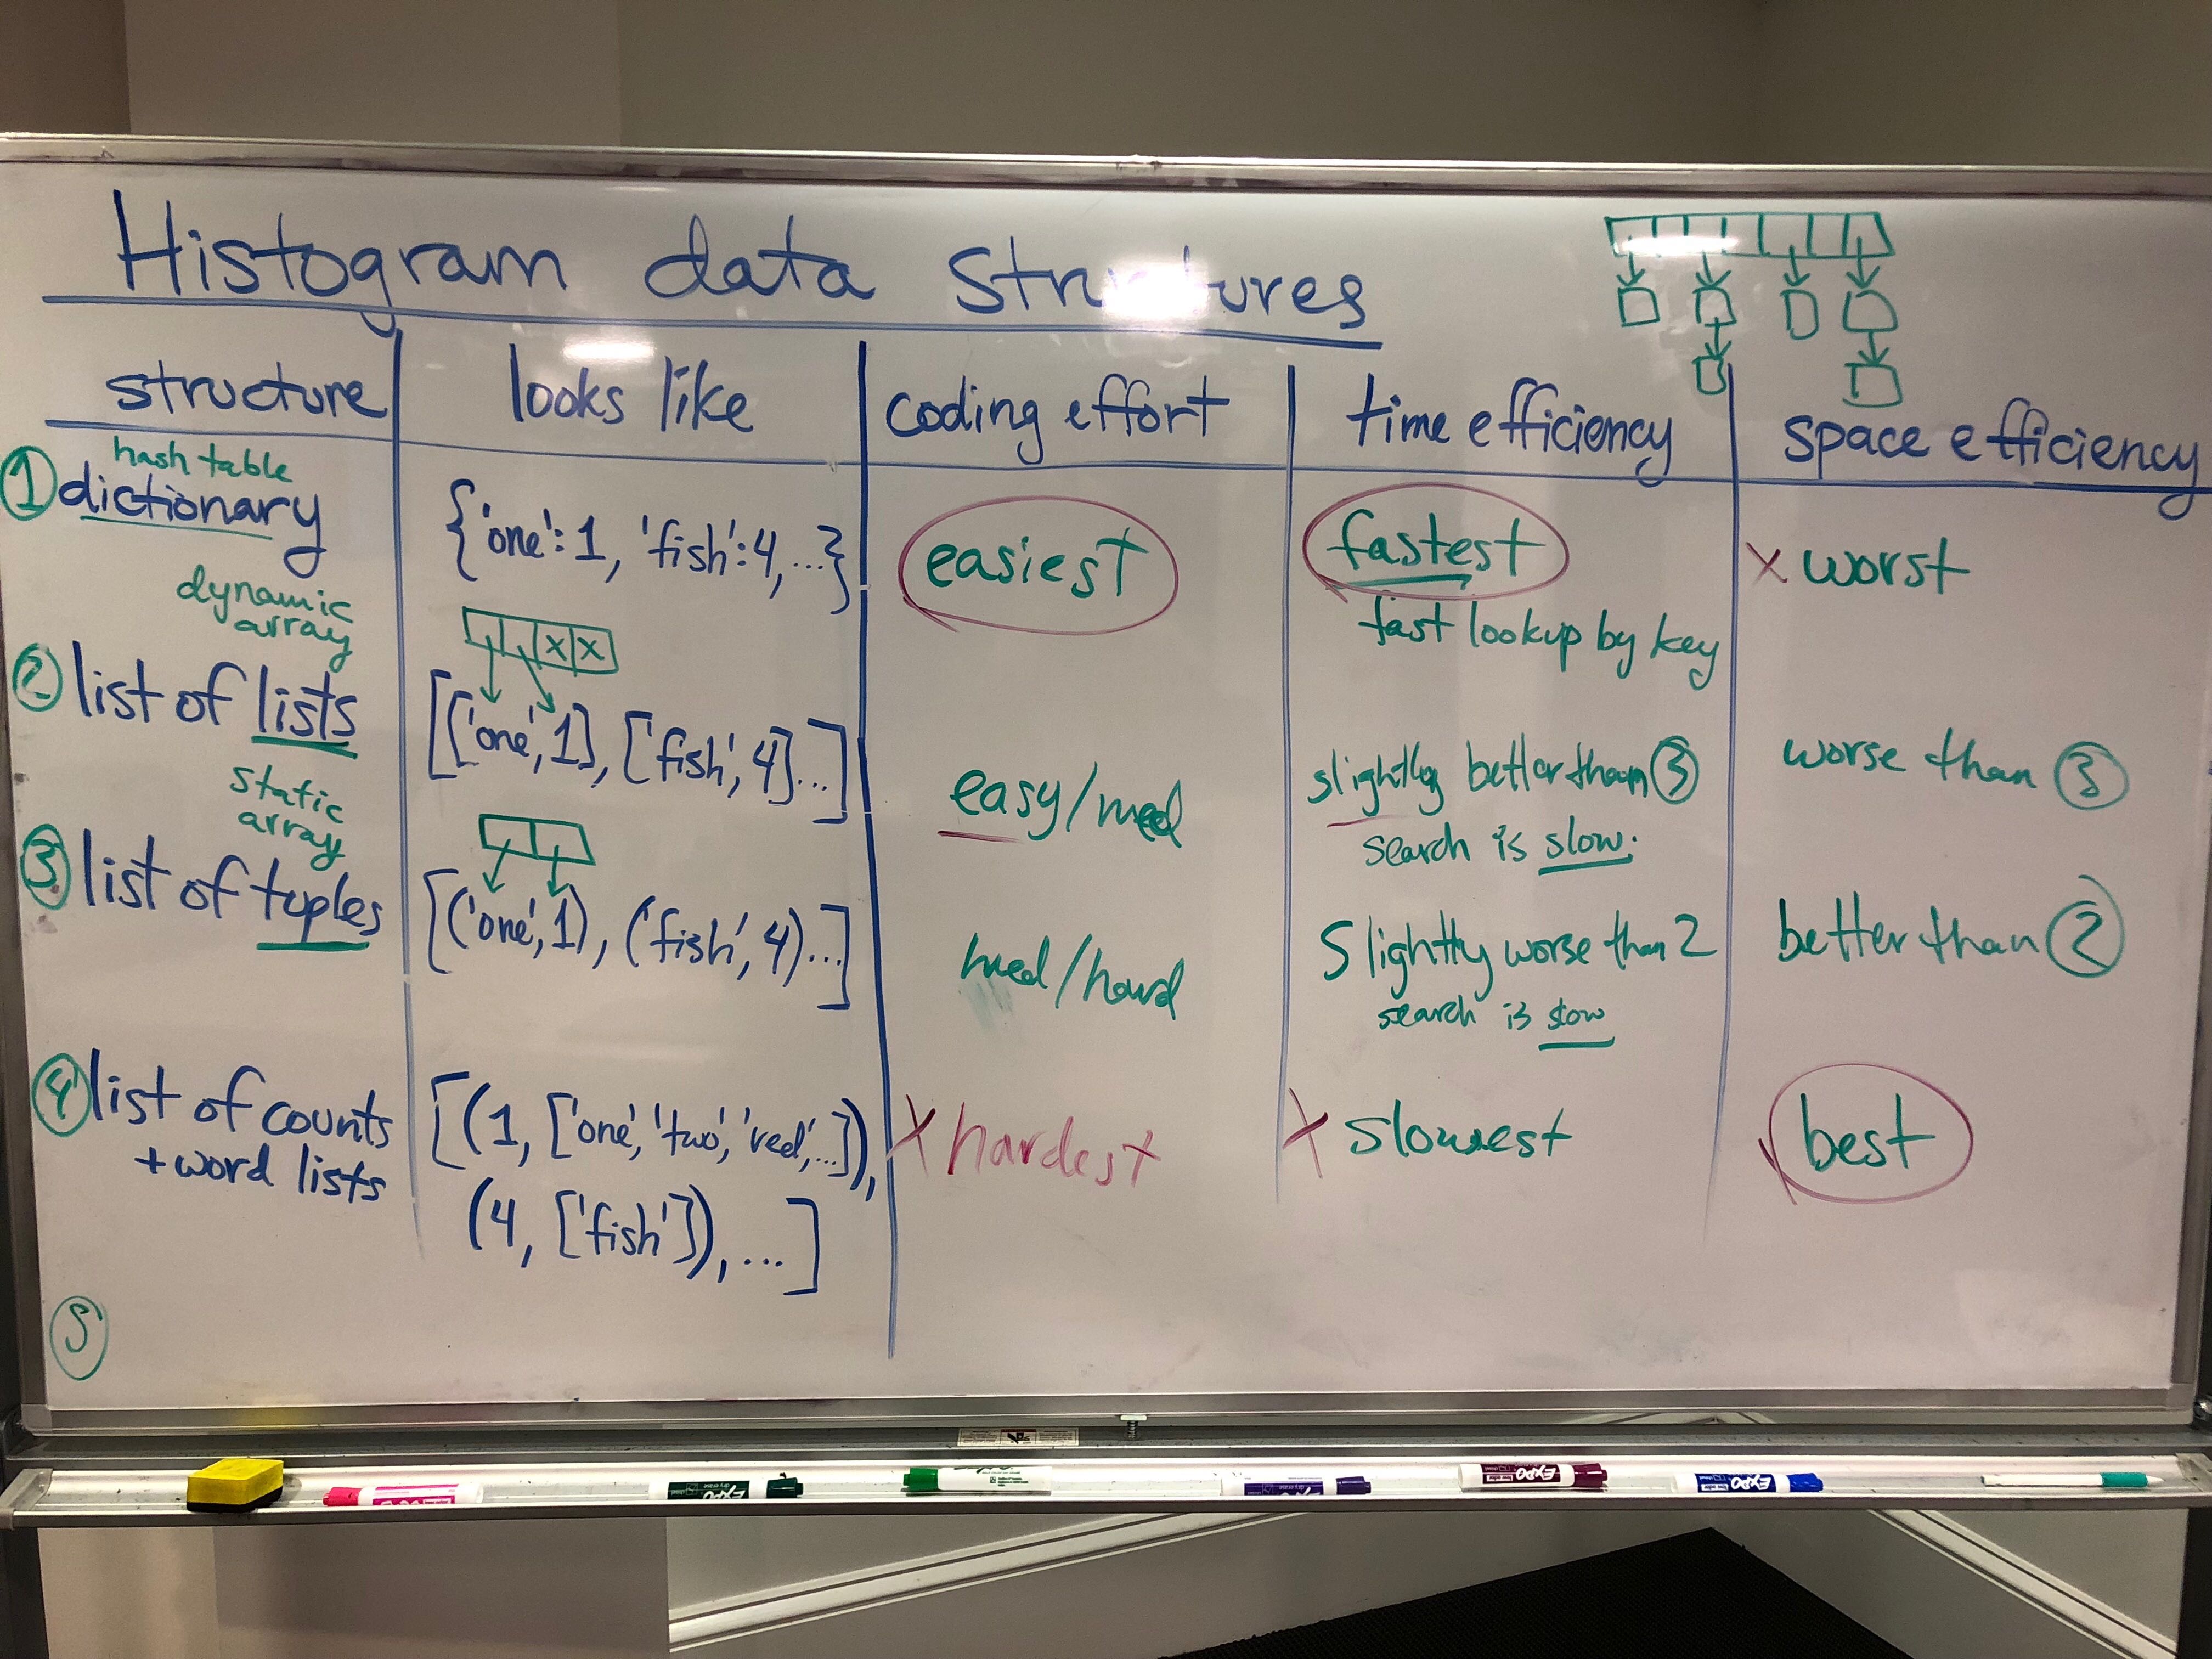 Histogram data structures
structure
looks like
coding effort
time efficiency
space efficiency
hash table
① dictionary
{'one': 1, 'fish': 4, ...}
easiest
fastest
fast lookup by key
x worst
dynamic
array
② list of lists
x x
[['one', 1], ['fish', 4]...]
easy/med
slightly better than ③
search is slow.
worse than ③
static
array
③ list of tuples
[('one', 1), ('fish', 4)...]
med/hard
Slightly worse than 2
search is slow
better than ②
④ list of counts
+ word lists
[(1, ['one', 'two', 'red', ...]),
(4, ['fish']), ...]
x hardest
x slowest
best
⑤
EXPO
EXPO
EXPO
EXPO